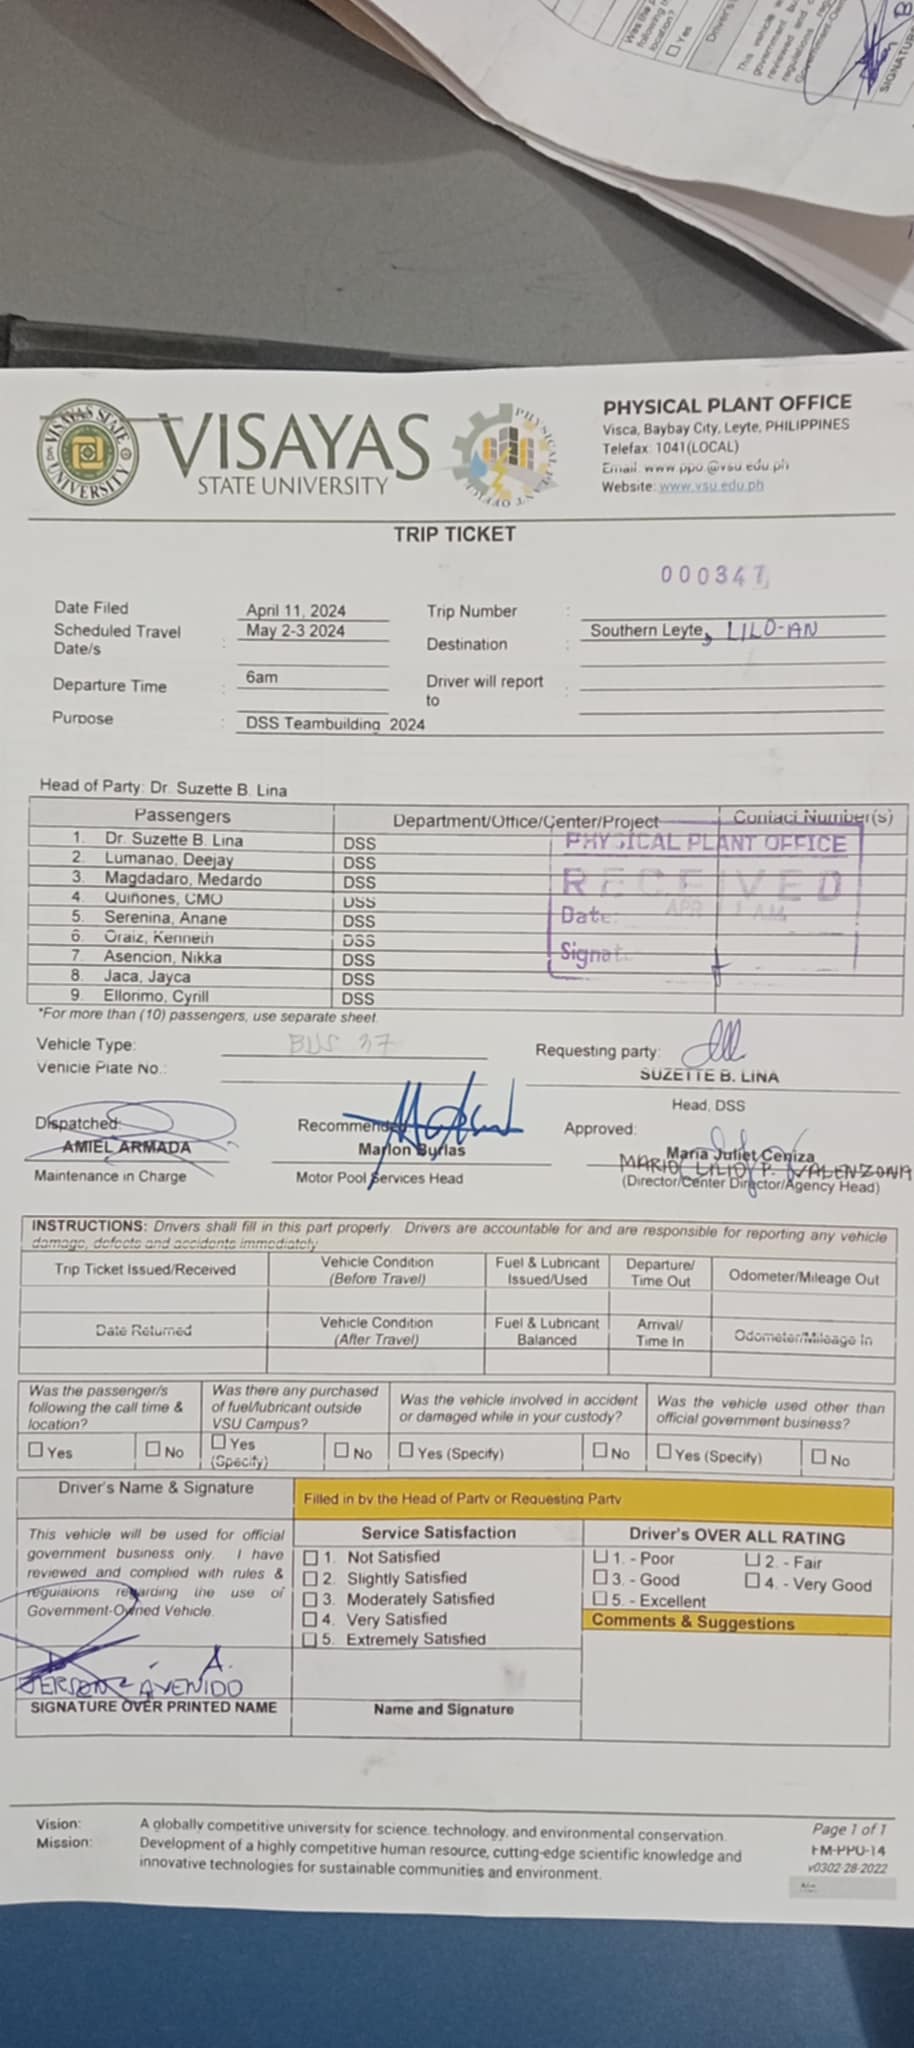 Was the
following the
location?
Yes
Driver's
This vehicle
government
reviewed and
regulations
Government-Own
SIGNATURE
VISAYAS STATE UNIVERSITY
VISAYAS
STATE UNIVERSITY
PHYSICAL PLANT OFFICE
PHYSICAL PLANT OFFICE
Visca, Baybay City, Leyte, PHILIPPINES
Telefax: 1041(LOCAL)
Email: www.ppo@vsu.edu.ph
Website: www.vsu.edu.ph
TRIP TICKET
000347
Date Filed April 11, 2024 Trip Number :
Scheduled Travel Date/s : May 2-3 2024 Destination : Southern Leyte, LILO-AN
Departure Time : 6am Driver will report to :
Purpose : DSS Teambuilding 2024
Head of Party: Dr. Suzette B. Lina
Passengers Department/Office/Center/Project Contact Number(s)
1. Dr. Suzette B. Lina DSS
2. Lumanao, Deejay DSS
3. Magdadaro, Medardo DSS
4. Quiñones, CMO DSS
5. Serenina, Anane DSS
6. Oraiz, Kenneth DSS
7. Asencion, Nikka DSS
8. Jaca, Jayca DSS
9. Ellorimo, Cyrill DSS
PHYSICAL PLANT OFFICE
RECEIVED
Date: APR
Signat.
*For more than (10) passengers, use separate sheet.
Vehicle Type: BUS 37 Requesting party:
Vehicle Plate No.: SUZETTE B. LINA
Head, DSS
Dispatched: Recommended Approved:
AMIEL ARMADA Marlon Burlas Maria Juliet Ceniza
MARIO LILIO P. VALENZONA
Maintenance in Charge Motor Pool Services Head (Director/Center Director/Agency Head)
INSTRUCTIONS: Drivers shall fill in this part properly. Drivers are accountable for and are responsible for reporting any vehicle
damage, defects and accidents immediately
Trip Ticket Issued/Received Vehicle Condition (Before Travel) Fuel & Lubricant Issued/Used Departure/ Time Out Odometer/Mileage Out
Date Returned Vehicle Condition (After Travel) Fuel & Lubricant Balanced Arrival/ Time In Odometer/Mileage In
Was the passenger/s following the call time & location? Was there any purchased of fuel/lubricant outside VSU Campus? Was the vehicle involved in accident or damaged while in your custody? Was the vehicle used other than official government business?
Yes No Yes (Specify) No Yes (Specify) No Yes (Specify) No
Driver's Name & Signature Filled in by the Head of Party or Requesting Party
This vehicle will be used for official
government business only. I have
reviewed and complied with rules &
regulations regarding the use of
Government-Owned Vehicle.
JERSON AVENIDO A.
SIGNATURE OVER PRINTED NAME
Service Satisfaction
1. Not Satisfied
2. Slightly Satisfied
3. Moderately Satisfied
4. Very Satisfied
5. Extremely Satisfied
Name and Signature
Driver's OVER ALL RATING
1. - Poor 2. - Fair
3. - Good 4. - Very Good
5. - Excellent
Comments & Suggestions
Vision: A globally competitive university for science, technology, and environmental conservation.
Mission: Development of a highly competitive human resource, cutting-edge scientific knowledge and
innovative technologies for sustainable communities and environment.
Page 1 of 1
FM-PPO-14
v0302-28-2022
No.